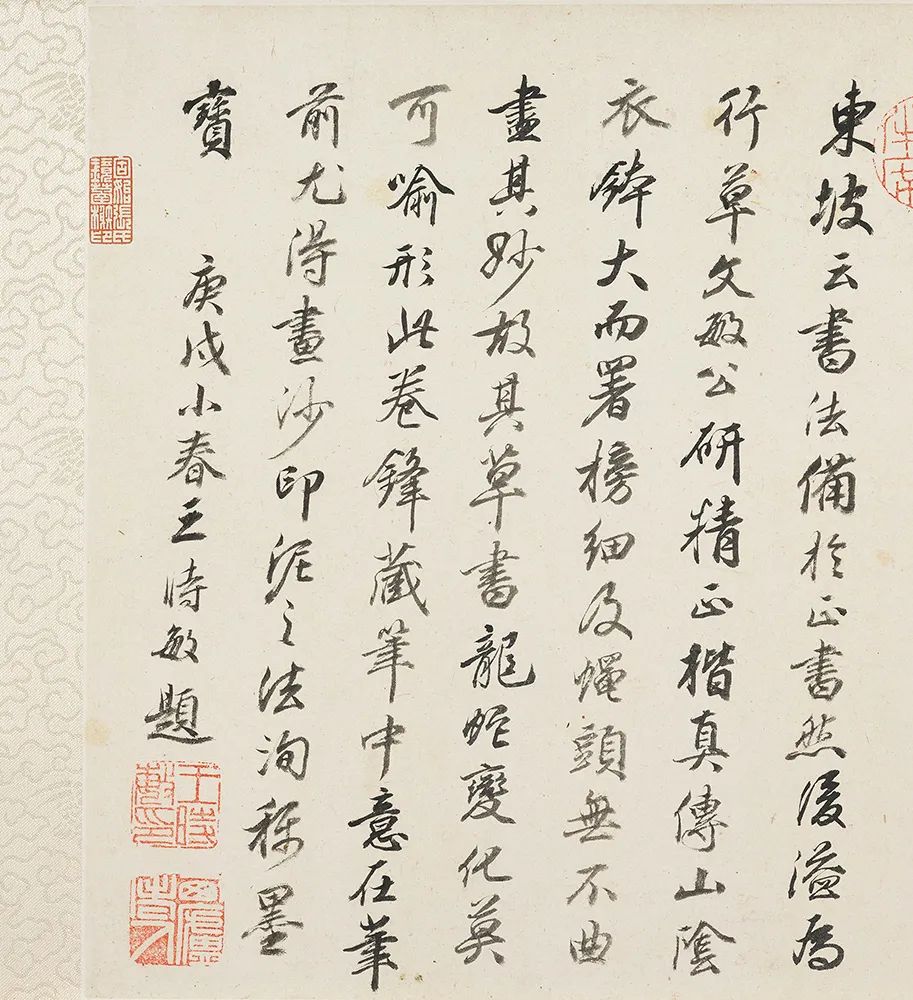 東坡云書法備於正書然後溢為
行草文敏公研精正楷真傳山陰
衣鉢大而署榜細及蠅頭無不曲
盡其妙故其草書龍蛇變化莫
可喻形此卷鋒藏筆中意在筆
前尤得畫沙印泥之法洵稱墨
寶
庚戌小春王時敏題
王時敏印